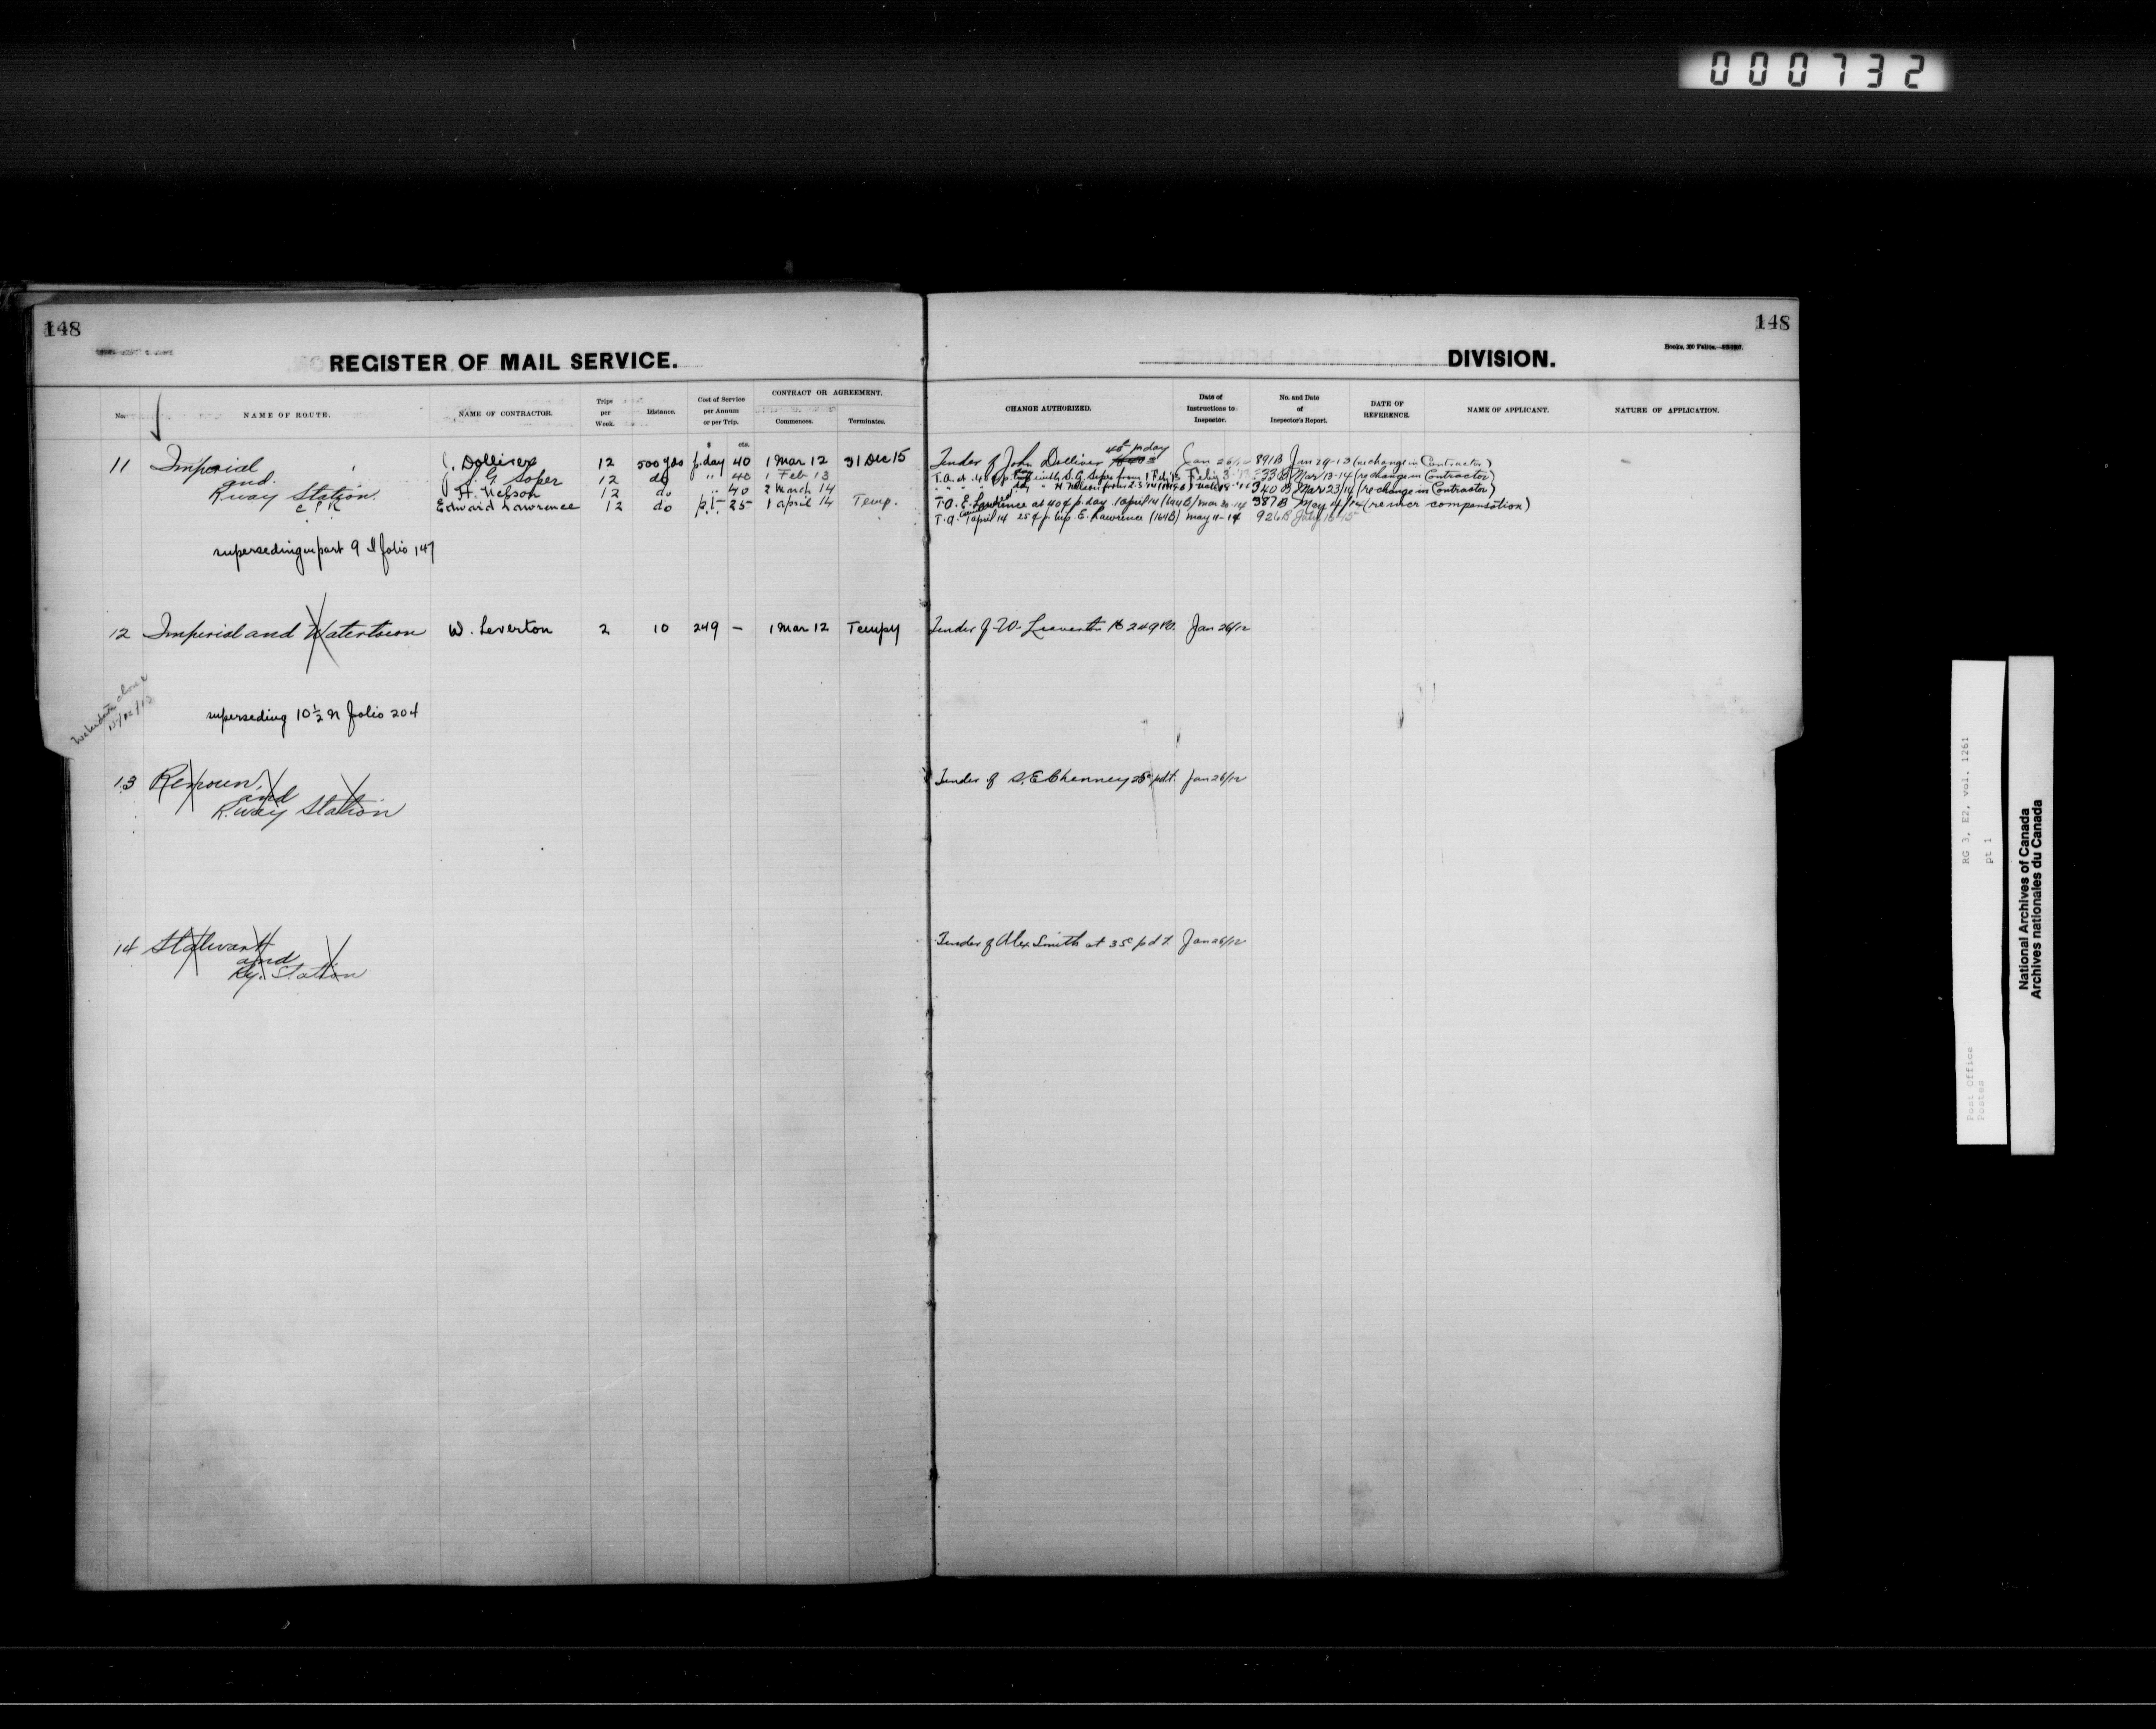 000732
148
REGISTER OF MAIL SERVICE.
No. NAME OF ROUTE. NAME OF CONTRACTOR. Trips per Week. Distance. Cost of Service per Annum or per Trip. CONTRACT OR AGREEMENT. Commences. Terminates.
$ cts.
11 Imperial J. Dolliver 12 500 yds p. day 40 1 Mar 12 31 Dec 15
and S. G. Soper 12 do " 40 1 Feb 13
R. way Station H. Nelson 12 do " 40 2 March 14
C P R Edward Lawrence 12 do p.t. 25 1 April 14 Temp.
superseding in part 9 folio 147
12 Imperial and Watertown W. Leverton 2 10 249 – 1 Mar 12 Tempy
superseding 10½ N folio 204
13 Renown
and
R. way Station
14 Stalwart
and
Ry. Station
148
DIVISION.
CHANGE AUTHORIZED. Date of Instructions to Inspector. No. and Date of Inspector's Report. DATE OF REFERENCE. NAME OF APPLICANT. NATURE OF APPLICATION.
Tender of John Dolliver 40¢ p day Jan 26/12 891B Jan 29-13 (re change in Contractor)
Mar 13-14 (re change in Contractor)
340 B Mar 23/14 (re change in Contractor)
T.A. E. Lawrence at 40¢ p. day 1 April 14 387B May 4/14 (re incr compensation)
T.A. 1 April 14 25¢ p. trip E. Lawrence (164B) May 11-14 926B July 16-15
Tender of W. Leverton Jan 26/12
Tender of S. E. Chenney Jan 26/12
Tender of Alex Smith at 35c p d t. Jan 26/12
RG 3, E2, vol. 1261
pt 1
Post Office
Postes
National Archives of Canada
Archives nationales du Canada